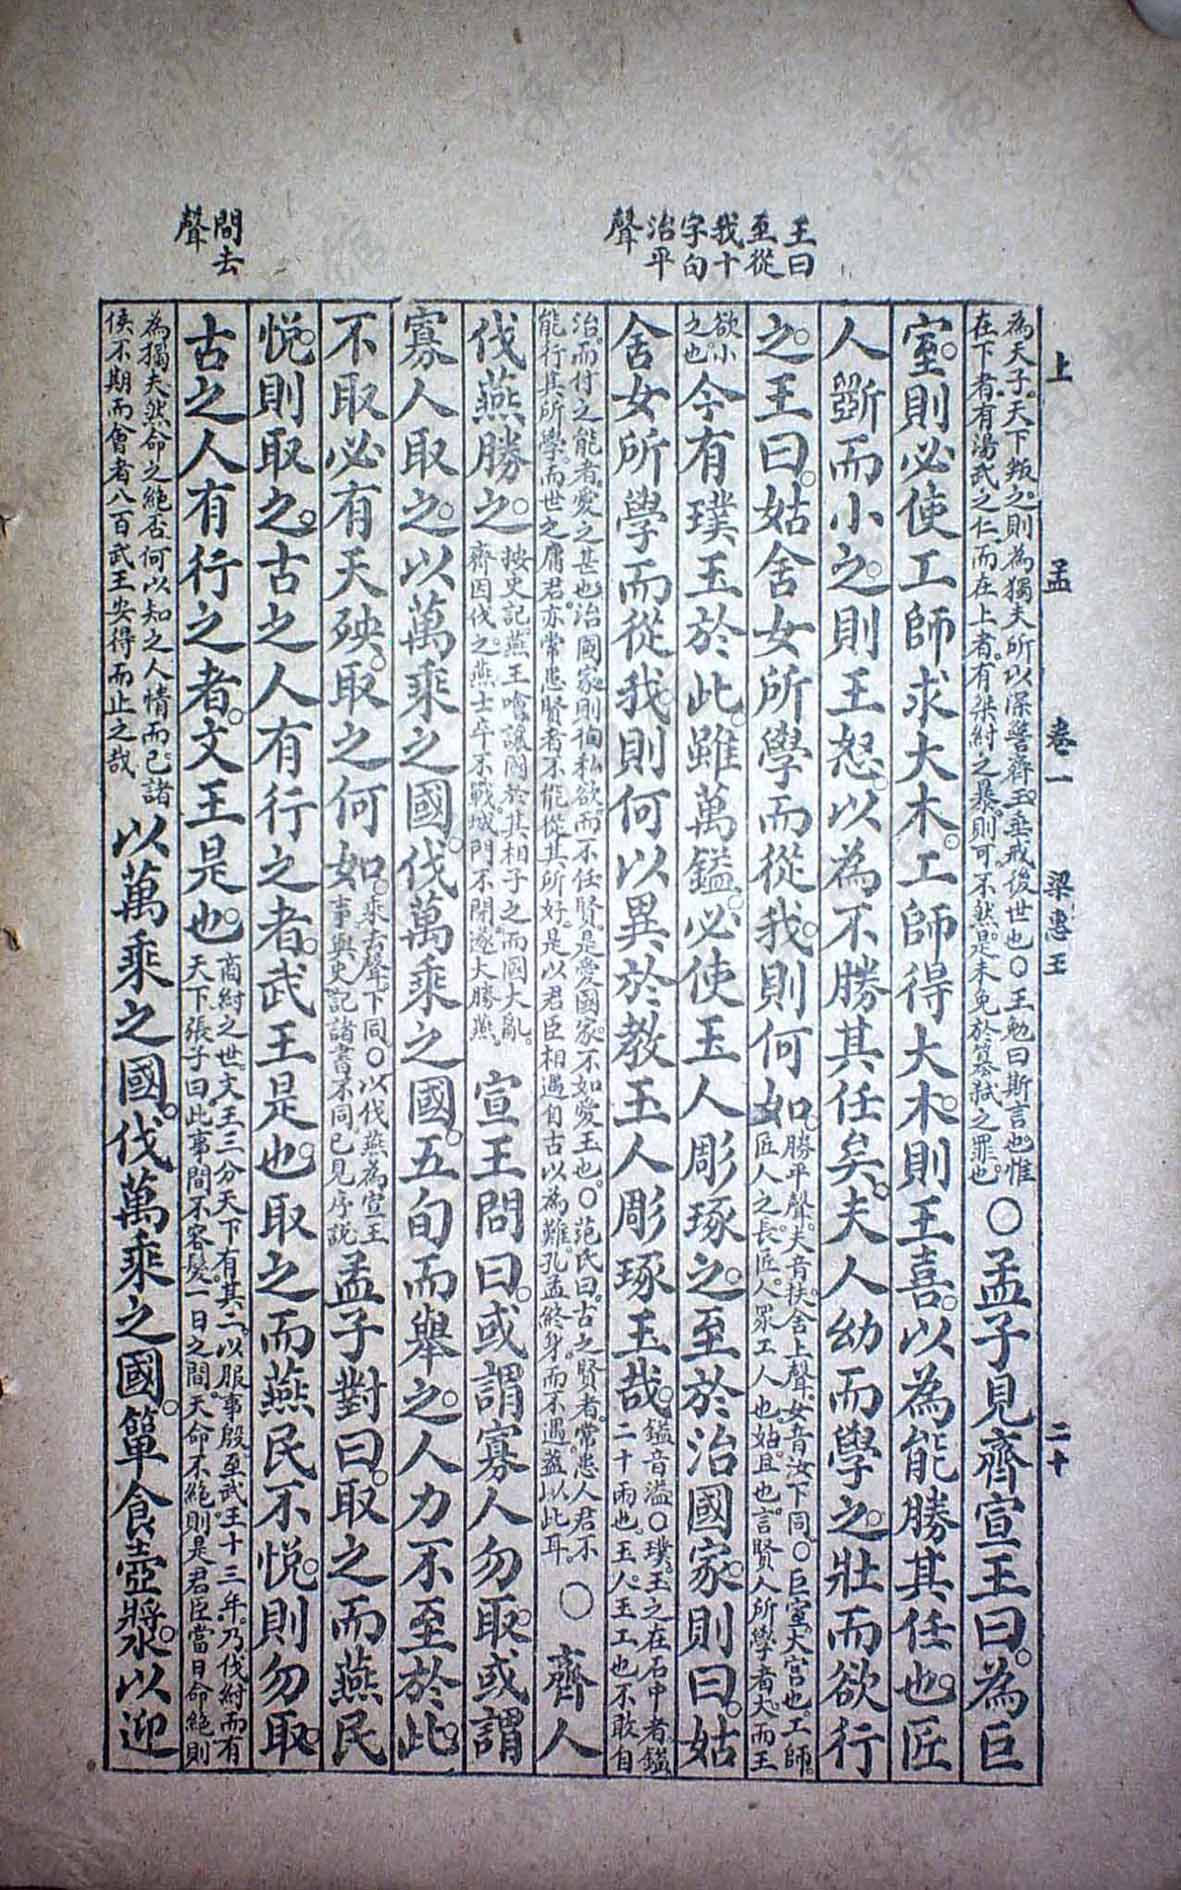 上 孟 卷一 梁惠王 二十
王曰
至從
我十
字句
治平
聲
間去
聲
為天子天下叛之則為獨夫所以深警齊王垂戒後世也○王勉曰斯言也惟
在下者有湯武之仁而在上者有桀紂之暴則可不然是未免於篡弒之罪也
○孟子見齊宣王曰為巨
室則必使工師求大木工師得大木則王喜以為能勝其任也匠
人斲而小之則王怒以為不勝其任矣夫人幼而學之壯而欲行
之王曰姑舍女所學而從我則何如
勝平聲夫音扶舍上聲女音汝下同○巨室大宮也工師
匠人之長匠人眾工人也姑且也言賢人所學者大而王
欲小
之也
今有璞玉於此雖萬鎰必使玉人彫琢之至於治國家則曰姑
舍女所學而從我則何以異於教玉人彫琢玉哉
鎰音溢○璞玉之在石中者鎰
二十兩也玉人玉工也不敢自
治而付之能者愛之甚也治國家則徇私欲而不任賢是愛國家不如愛玉也○范氏曰古之賢者常患人君不
能行其所學而世之庸君亦常患賢者不能從其所好是以君臣相遇自古以為難孔孟終身而不遇蓋以此耳
○齊人
伐燕勝之
按史記燕王噲讓國於其相子之而國大亂
齊因伐之燕士卒不戰城門不閉遂大勝燕
宣王問曰或謂寡人勿取或謂
寡人取之以萬乘之國伐萬乘之國五旬而舉之人力不至於此
不取必有天殃取之何如
乘去聲下同○以伐燕為宣王
事與史記諸書不同已見序說
孟子對曰取之而燕民
悅則取之古之人有行之者武王是也取之而燕民不悅則勿取
古之人有行之者文王是也
商紂之世文王三分天下有其二以服事殷至武王十三年乃伐紂而有
天下張子曰此事間不容髮一日之間天命不絕則是君臣當日命絕則
為獨夫然命之絕否何以知之人情而已諸
侯不期而會者八百武王安得而止之哉
以萬乘之國伐萬乘之國簞食壺漿以迎